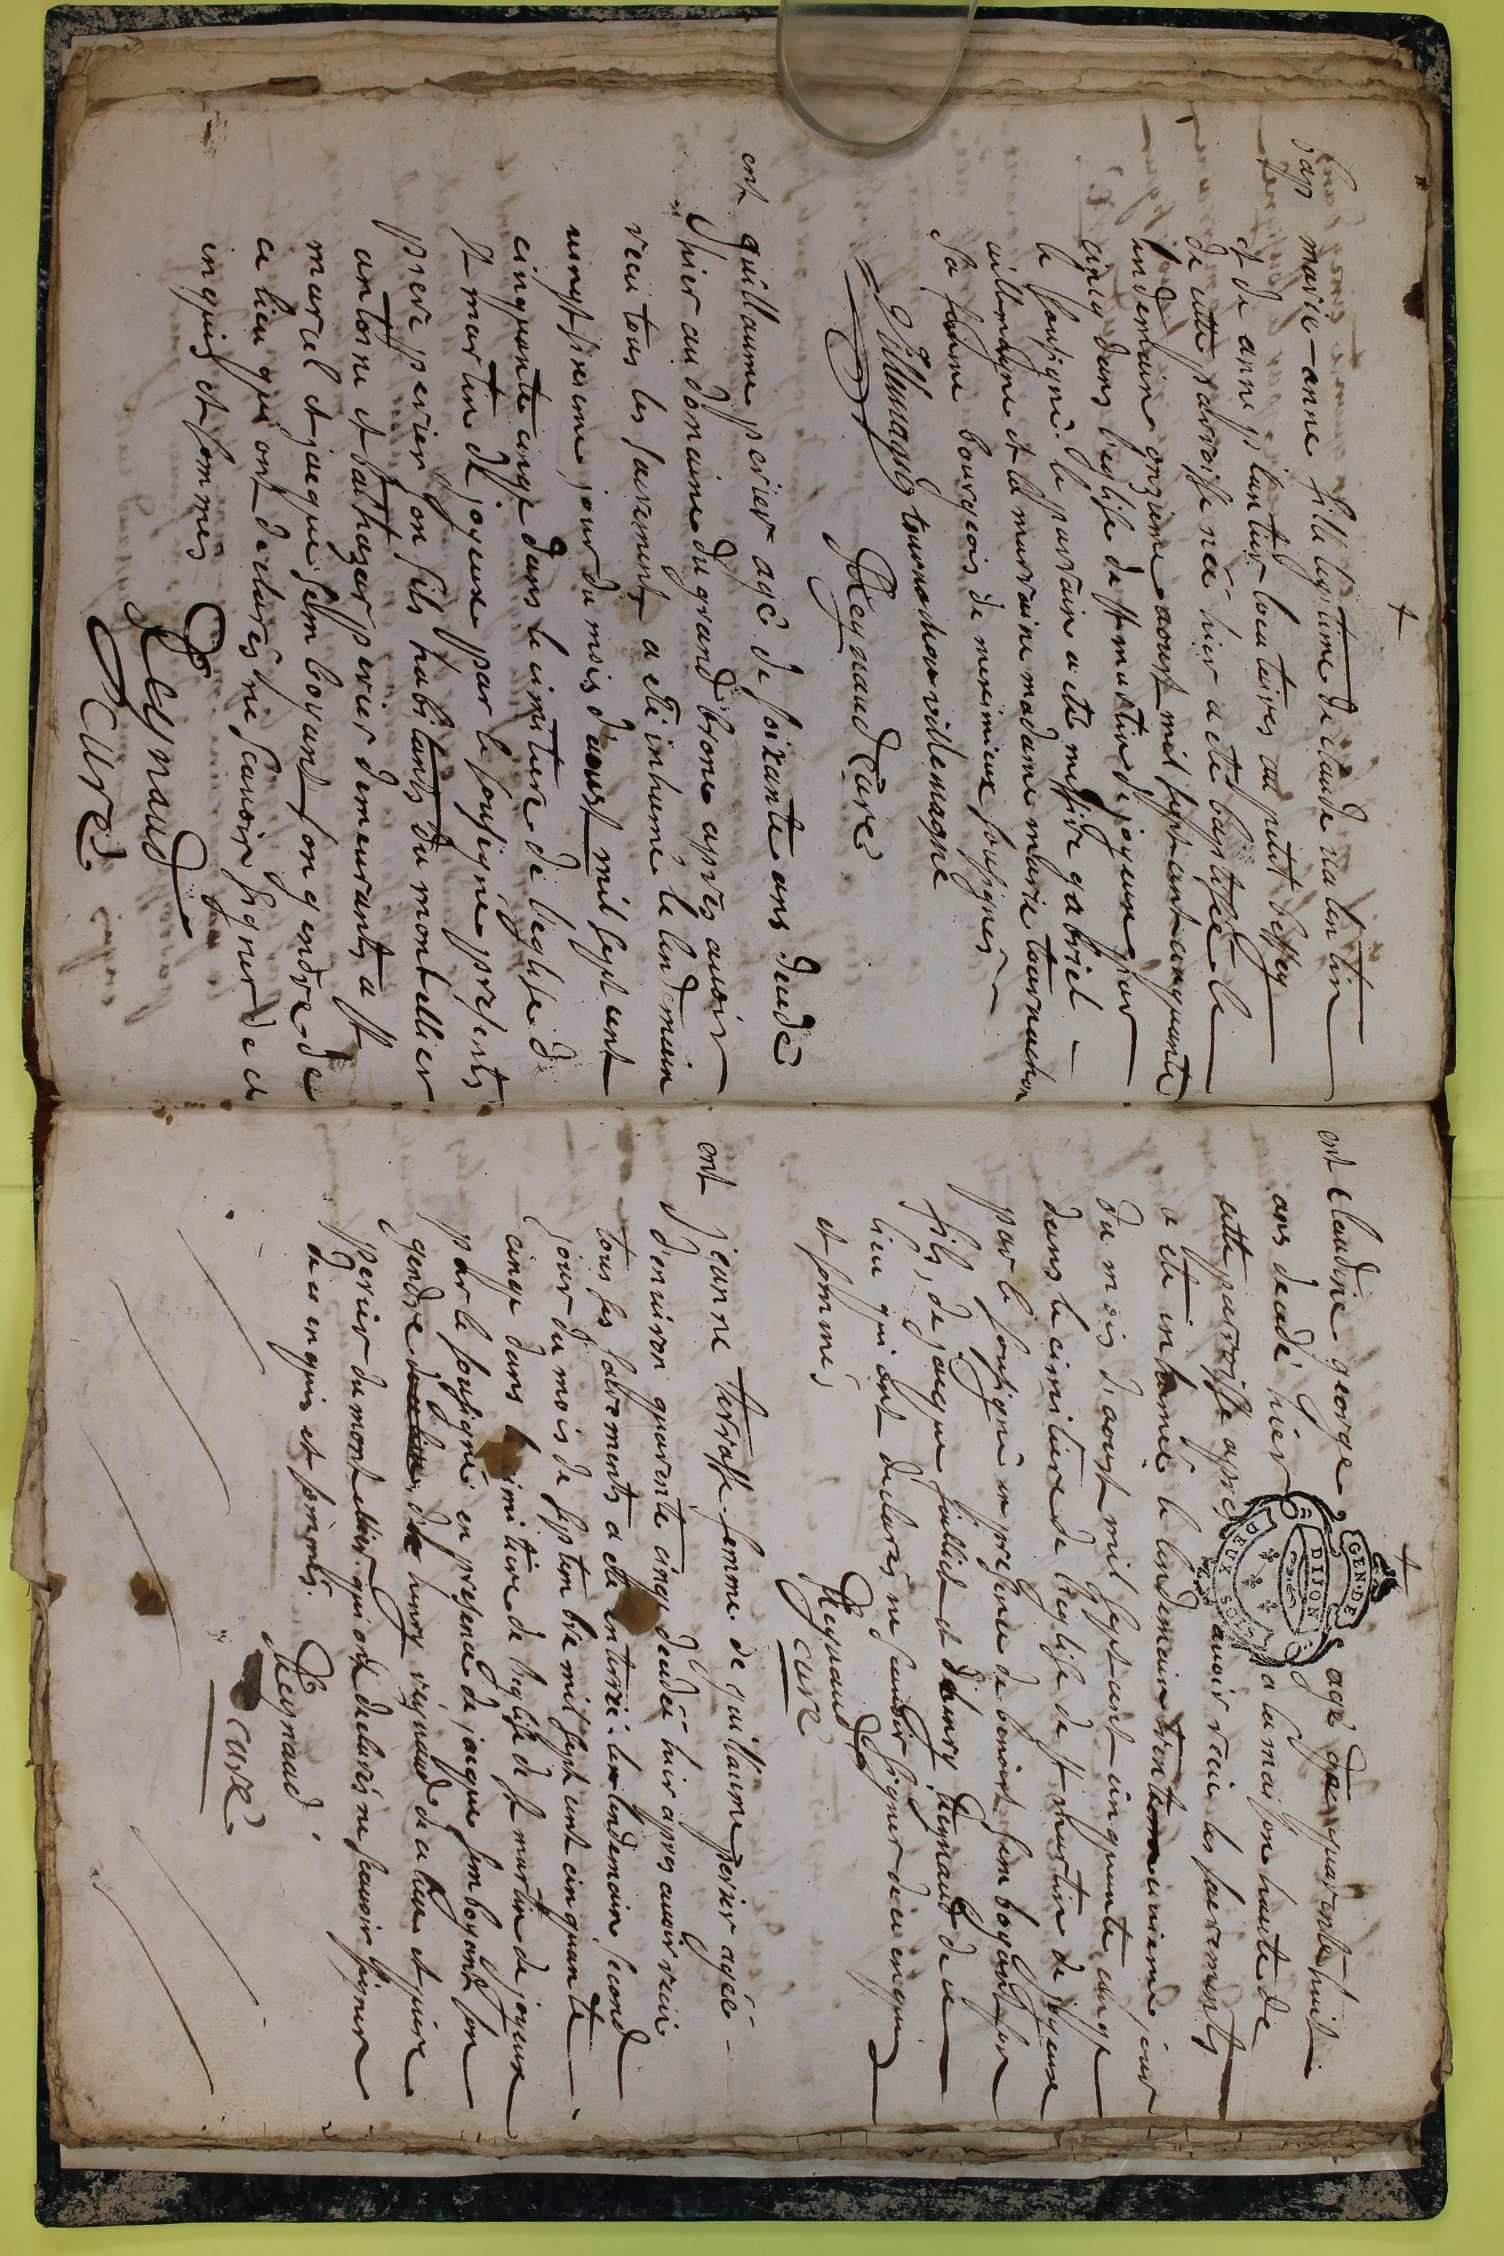 +
bap marie-anne fille legitime de claude valentin
et de anne plantier locataires au petit bessey
de cette parroisse née hier a eté baptisée le
lendemain onzieme aoust mil sept cent cinquante
cincq dans l'eglise de st martin de joyeuse par
le sousigné. le parrain a eté messire gabriel
villemagne et la marraine madame marie tournachon
sa femme bourgeois de meximieux sousignés
Villemagne tournachon villemagne
Reynaud curé
ent guillaume perier agé de soixante ans decedé
hier au domaine du grand brone apres avoir
receu tous les sacrements a eté inhumé le lendemain
vingt sixieme jour du mois d'aoust mil sept cent
cinquante cinq dans le cimitiere de l'eglise de
st martin de joyeuse par le sousigné presents
piere perier son fils habitants du montellier
antoine et balthazar perier demeurants a st
marcel et jacque semboyant son gendre de
ce lieu qui ont declarés ne scavoir signer de ce
inquis et sommes
Reynaud
curé.
+
GEN. DE
DIJON
DEUX SOLS
ent claudine george agé de quarente huit
ans decedé hier a la maison haute de
cette parroisse apres avoir receu les sacrements
a eté inhumée le lendemain trente unieme jour
du mois d'aoust mil sept cent cinquante cinq
dans le cimitiere de l'eglise de st martin de joyeuse
par le sousigné en presence de benoist semboyant son
fils, de jacque juilliet et d'henry Reynaud de ce
lieu qui ont declarés ne scavoir signer de ce enquis
et sommés
Reynaud
curé
ent jeanne terrasse femme de guillaume perier agée
d'environ quarente cinq decedée hier apres avoir receu
tous ses sacrements a eté enterrée le lendemain second
jour du mois de septembre mil sept cent cinquante
cinq dans le cimitiere de l'eglise de st martin de joyeuse
par le sousigné en presence de jacque semboyant son
gendre de henry reynaud de ce lieu et piere
perier du montellier qui ont declarés ne scavoir signer
de ce enquis et sommés.
Reynaud
curé